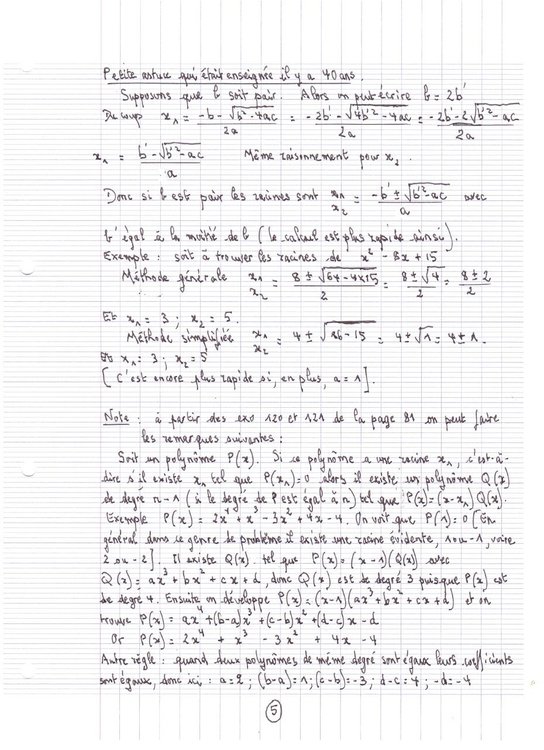 Petite astuce qui était enseignée il y a 40 ans.
Supposons que b soit pair. Alors on peut écrire b = 2b'
Du coup x₁ = (-b - √(b² - 4ac))/2a = (-2b' - √(4b'² - 4ac))/2a = (-2b' - 2√(b'² - ac))/2a
x₁ = (b' - √(b'² - ac))/a Même raisonnement pour x₂.
Donc si b est pair les racines sont x₁ x₂ = (-b' ± √(b'² - ac))/a avec
b' égal à la moitié de b (le calcul est plus rapide ainsi).
Exemple : soit à trouver les racines de x² - 8x + 15
Méthode générale x₁ x₂ = (8 ± √(64 - 4×15))/2 = (8 ± √4)/2 = (8 ± 2)/2
Et x₁ = 3 ; x₂ = 5.
Méthode simplifiée x₁ x₂ = 4 ± √(16 - 15) = 4 ± √1 = 4 ± 1.
x₁ = 3 ; x₂ = 5
[C'est encore plus rapide si, en plus, a = 1].
Note : à partir des exo 120 et 121 de la page 81 on peut faire
les remarques suivantes :
Soit un polynôme P(x). Si ce polynôme a une racine x₁, c'est-à-
dire s'il existe x₁ tel que P(x₁) = 0 alors il existe un polynôme Q(x)
de degré n-1 (si le degré de P est égal à n) tel que P(x) = (x-x₁) Q(x).
Exemple P(x) = 2x⁴ + x³ - 3x² + 4x - 4. On voit que P(1) = 0 [En
général dans ce genre de problème il existe une racine évidente, 1 ou -1, voire
2 ou -2]. Il existe Q(x) tel que P(x) = (x-1)(Q(x)) avec
Q(x) = ax³ + bx² + cx + d, donc Q(x) est de degré 3 puisque P(x) est
de degré 4. Ensuite on développe P(x) = (x-1)(ax³ + bx² + cx + d) et on
trouve P(x) = ax⁴ + (b-a)x³ + (c-b)x² + (d-c)x - d
Or P(x) = 2x⁴ + x³ - 3x² + 4x - 4
Autre règle : quand deux polynômes de même degré sont égaux leurs coefficients
sont égaux, donc ici : a = 2 ; (b-a) = 1 ; (c-b) = -3 ; d-c = 4 ; -d = -4
5